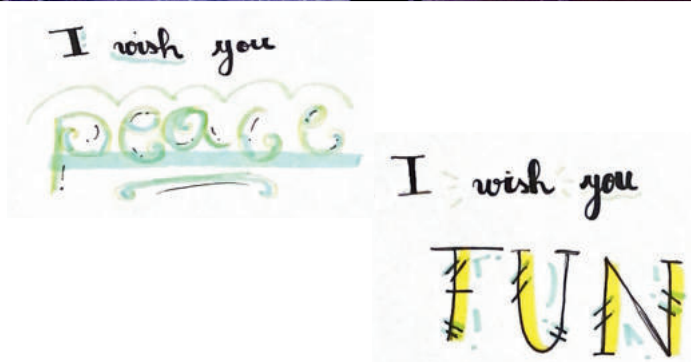 I wish you
peace
I wish you
FUN